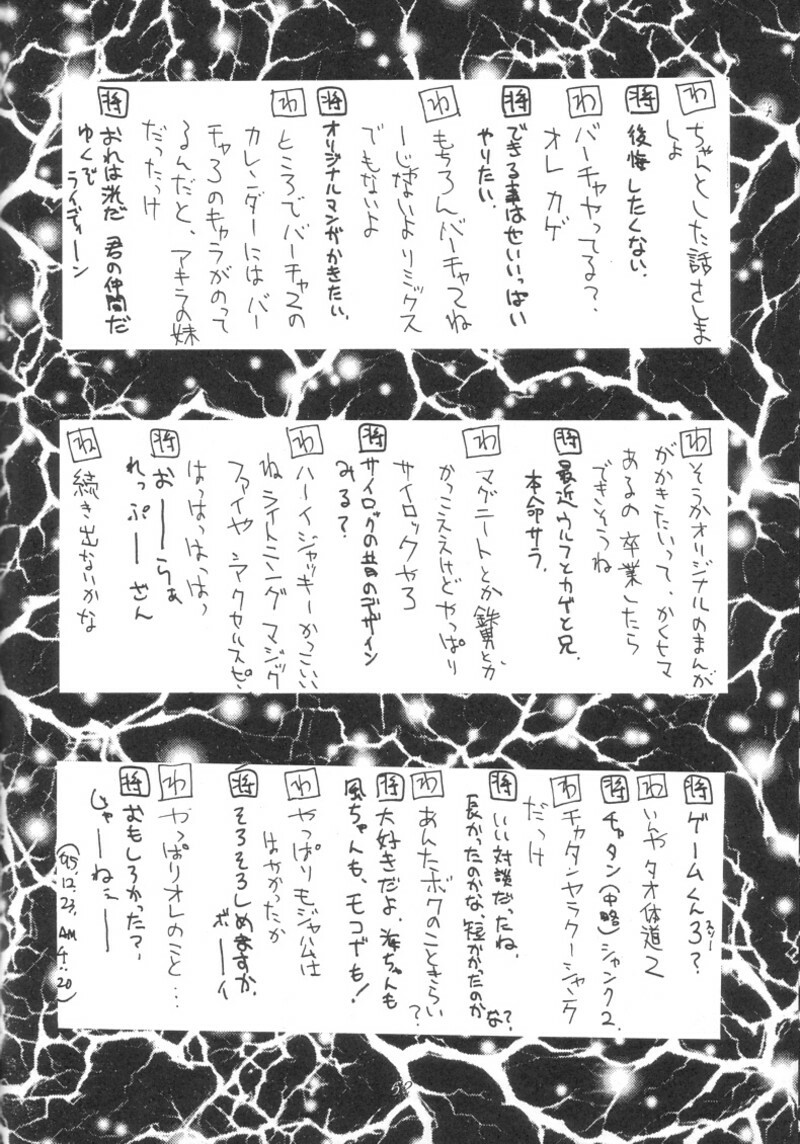 わ ちゃんとした話さしま
しょ
将 後悔したくない。
わ バーチャやってる?
オレ カゲ
将 できる事はせいいっぱい
やりたい。
わ もちろんバーチャ2ね
ーじゃないよリミックス
でもないよ
将 オリジナルマンガかきたい。
わ ところでバーチャ2の
カレンダーにはバー
チャ3のキャラがのって
るんだと、アキラの妹
だったっけ
将 おれは 君の仲間だ
ゆくぞ
ライディーン
わ そうかオリジナルのまんが
がかきたいって、かくヒマ
あるの 卒業したら
できそうね
将 最近ウルフとカゲと兄。
本命サラ。
わ マグニートとか鉄男とか
かっこええけどやっぱり
サイロックやろ
将 サイロックの昔のデザイン
みる?
わ ハーイジャッキーかっこいい
ねライトニング マジック
ファイヤ シアクセルスピ、
はっはっはっはっ
将 おーーらぁ
れっぷーざん
わ 続き出ないかな
将 ゲームくん3?
スリー
わ いんや タオ体道2
将 チャタン(中略)シャンク2.
わ チャタンヤラクーシャンク
だっけ
将 いい対談だったね。
長かったのかな、短かかったのか
な?
わ あんたボクのこときらい
?
将 大好きだよ、海ちゃんも
風ちゃんも、モコナも!
わ やっぱりモジャハムは
はやかったか
将 そろそろしめますか。
ボーイ
わ やっぱりオレのこと…
将 おもしろかった?
じゃーねぇーー
('95.12.23. AM 4:20)